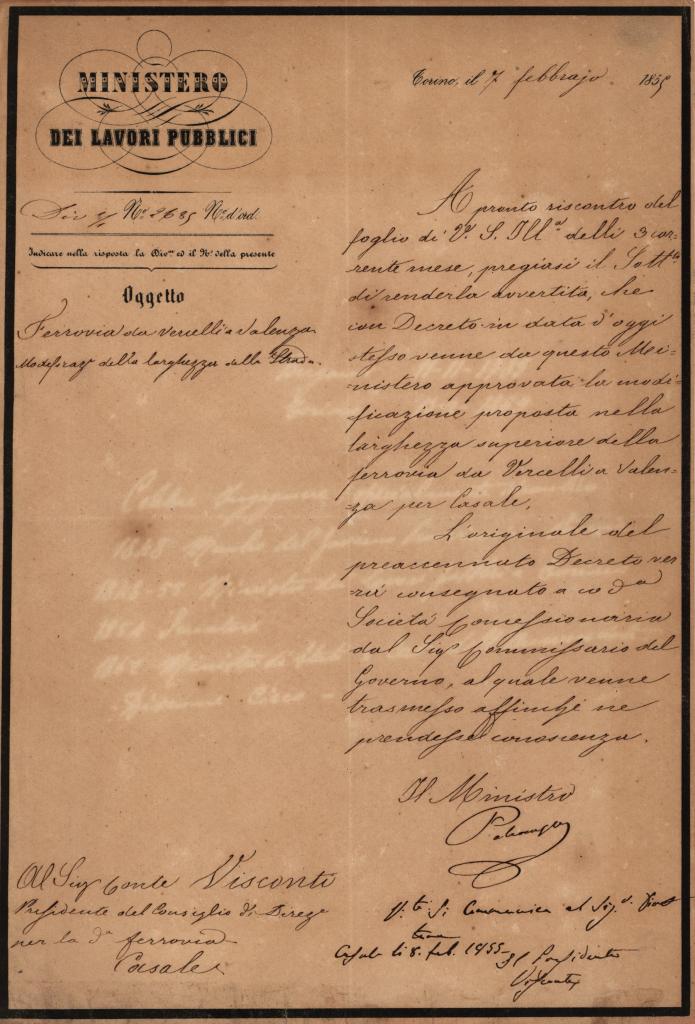 MINISTERO
DEI LAVORI PUBBLICI
Torino, il 7 febbrajo 1855
Div. N.º 2685 N.º d'ord.
Indicare nella risposta la Divne ed il Nº della presente
Oggetto
Ferrovia da Vercelli a Valenza
della larghezza della Strada.
A pronto riscontro del
foglio di V. S. Ill. delli 3 cor-
rente mese, pregiasi il Sott.
di renderla avvertita, che
con Decreto in data d'oggi
stesso venne da questo Mi-
nistero approvata la modi-
ficazione proposta nella
larghezza superiore della
ferrovia da Vercelli a Valen-
za per Casale.
L'originale del
preaccennato Decreto ver
rà consegnato a co da
Società Concessionaria
dal Sig Commissario del
Governo, al quale venne
trasmesso affinchè ne
prendesse conoscenza.
Il Ministro
Al Sig Conte Visconti
Presidente del Consiglio di Direze
per la da ferrovia
Casale
Si Comunica al Sig.
Casale li 8. feb. 1855
Il Presidente
Visconti
1848